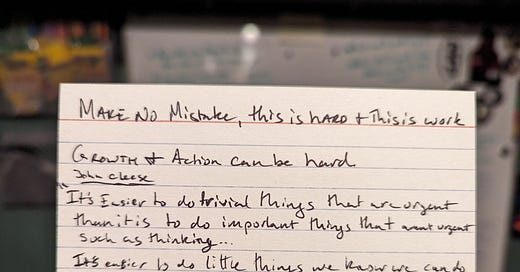 Make No Mistake, this is hard & This is work
Growth & Action can be hard
John Cleese
"It's Easier to do trivial things that are urgent
than it is to do important things that arent urgent
such as thinking...
It's easier to do little things we know we can do